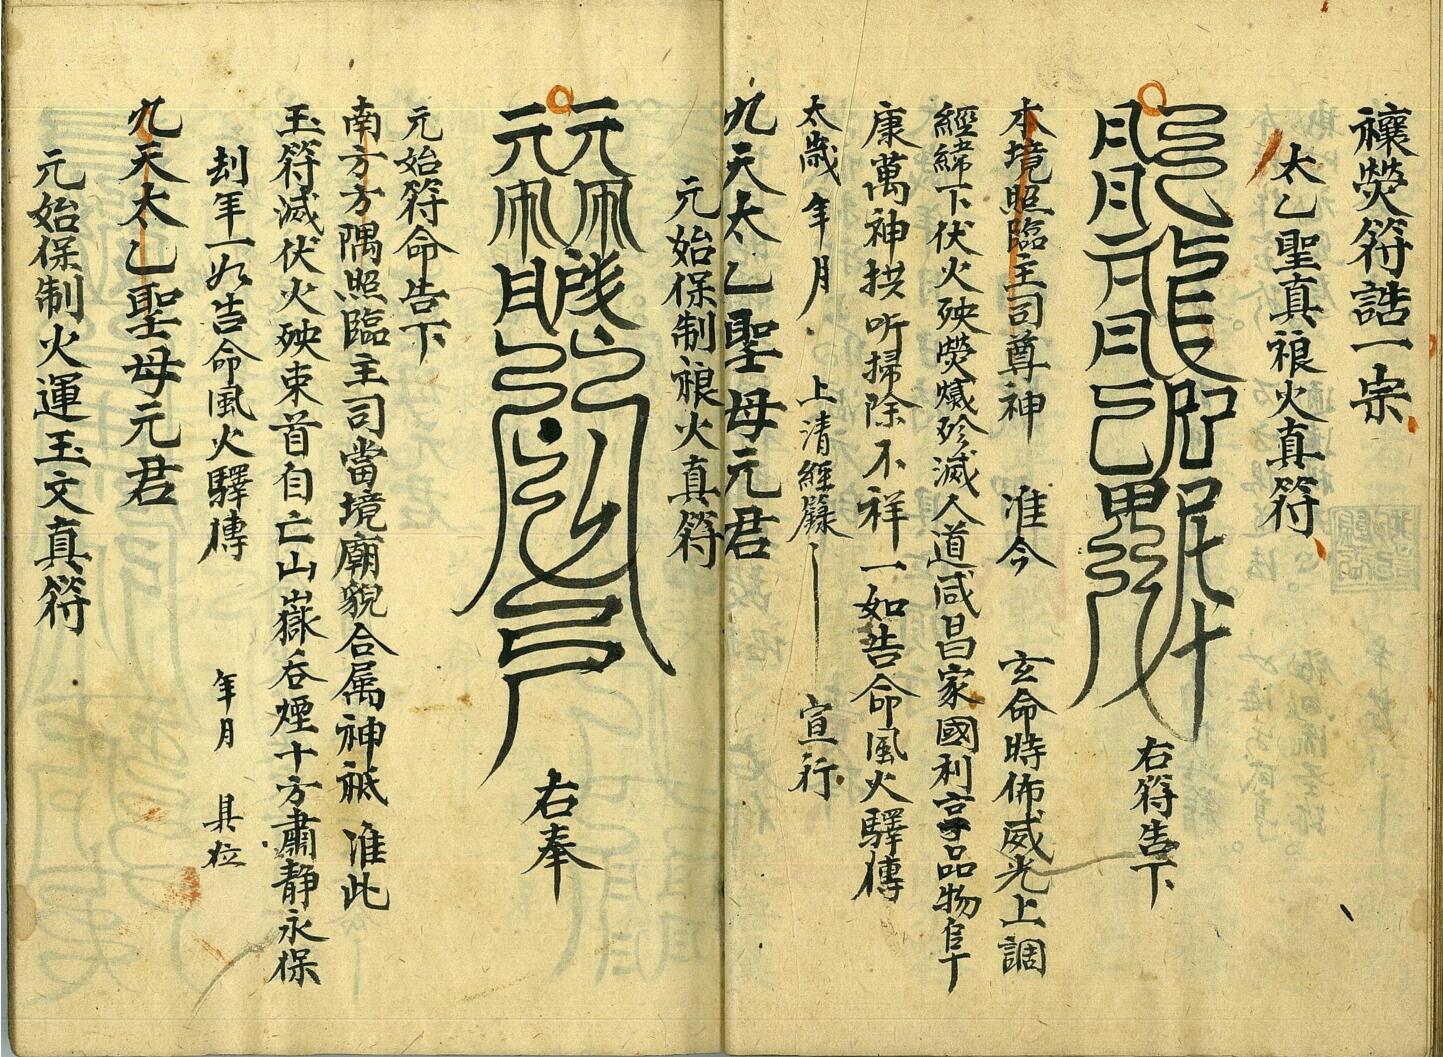 禳熒符誥一宗
太乙聖真禳火真符
右符告下
本境照臨主司尊神 准今 玄命時佈威光上調
經緯下伏火殃熒爞殄滅人道咸昌家國利亨品物阜
康萬神拱听掃除不祥一如告命風火驛傳
太歲 年月 上清經籙 宣行
九天太乙聖母元君
元始保制禳火真符
右奉
元始符命告下
南方方隅照臨主司當境廟貌合属神祗 准此
玉符滅伏火殃束首自亡山嶽吞煙十方肅靜永保
刦年一如告命風火驛傳 年月 具位
九天太乙聖母元君
元始保制火運玉文真符